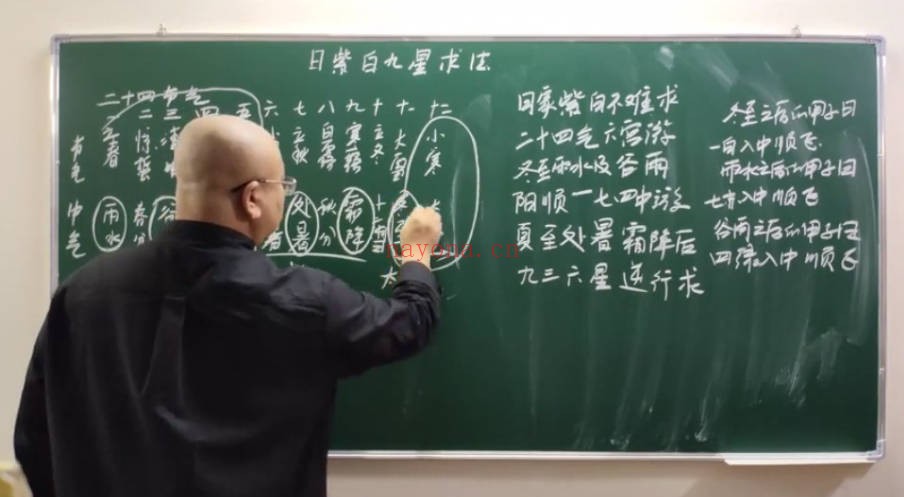 日紫白九星求法
二十四节气
二 三 四 五 六 七 八 九 十 十一 十二
节气 立春 惊蛰 清 立秋 白露 寒露 立冬 大雪 小寒
中气 雨水 春分 谷 处暑 秋分 霜降
太
日家紫白不难求
二十四气六宫游
冬至雨水及谷雨
阳顺一七四中游
夏至处暑霜降后
九三六星逆行求
冬至之后的甲子日
一白入中顺飞
雨水之后的甲子日
七赤入中顺飞
谷雨之后的甲子日
四绿入中顺飞
nayona.cn